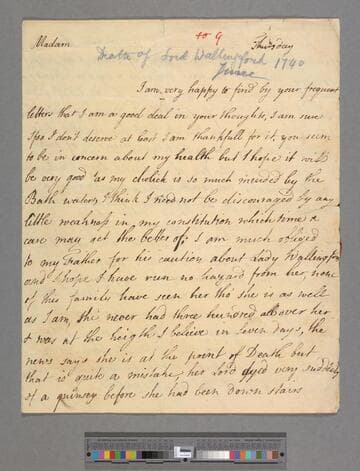 to 9
Madam Thursday
Death of Lord Wallingford 1740
June
I am very happy to find by your frequent
letters that I am a good deal in your thoughts, I am sure
if I don't deserve at least I am thankfull for it, you seem
to be in concern about my health but I hope it will
be very good as my cholick is so much mended by the
Bath waters I think I need not be discouraged by any
little weakness in my constitution which time &
care may get the better of; I am much obliged
to my Father for his caution about Lady Wallingford
and I hope I have run no hazard from her, none
of this family have seen her tho she is as well
as I am, she never had three hundred all over her,
& was at the heigth I believe in seven days, the
news says she is at the point of Death but
that is quite a mistake, her Lord dyed very suddenly
of a quinsey before she had been down stairs